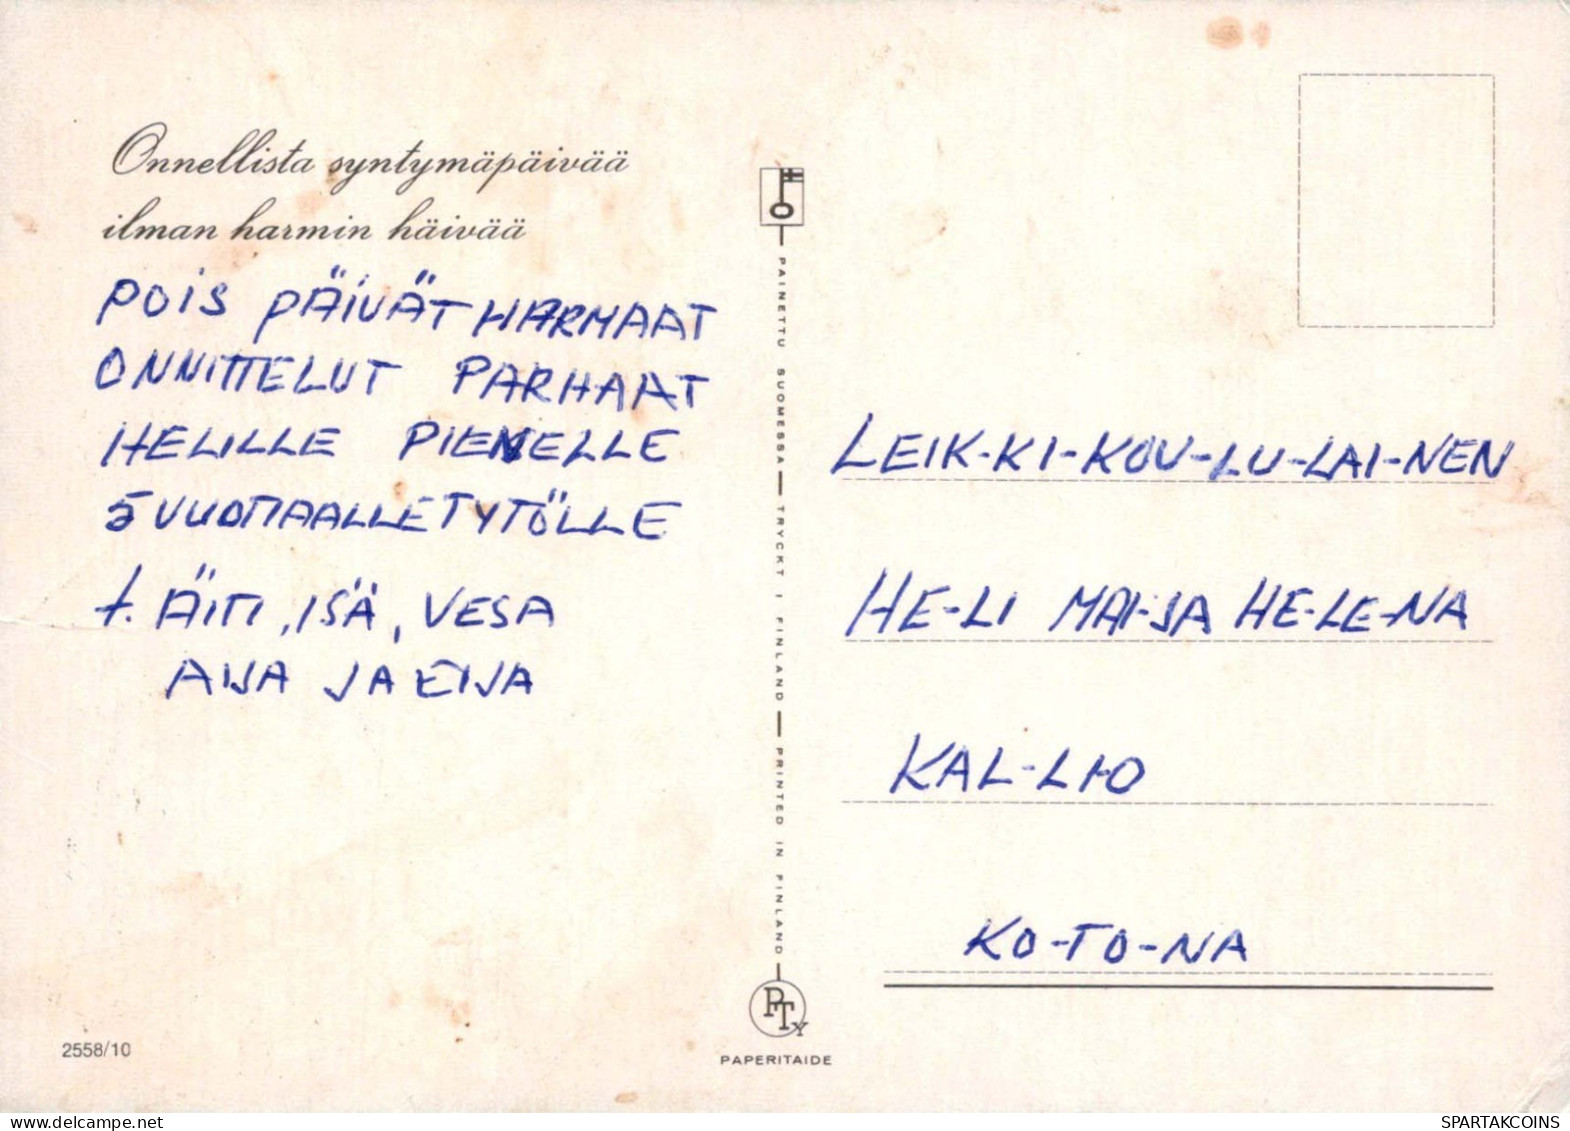 Onnellista syntymäpäivää
ilman harmin häivää
POIS PÄIVÄT HARMAAT
ONNITTELUT PARHAAT
HELILLE PIENELLE
5 VUOTIAALLE TYTÖLLE
t. ÄITI, ISÄ, VESA
AIJA JA EIJA
2558/10
PAINETTU SUOMESSA — TRYCKT I FINLAND — PRINTED IN FINLAND
PTY
PAPERITAIDE
LEIK-KI-KOU-LU-LAI-NEN
HE-LI MAI-JA HE-LE-NA
KAL-LI-O
KO-TO-NA
SPARTAKCOINS